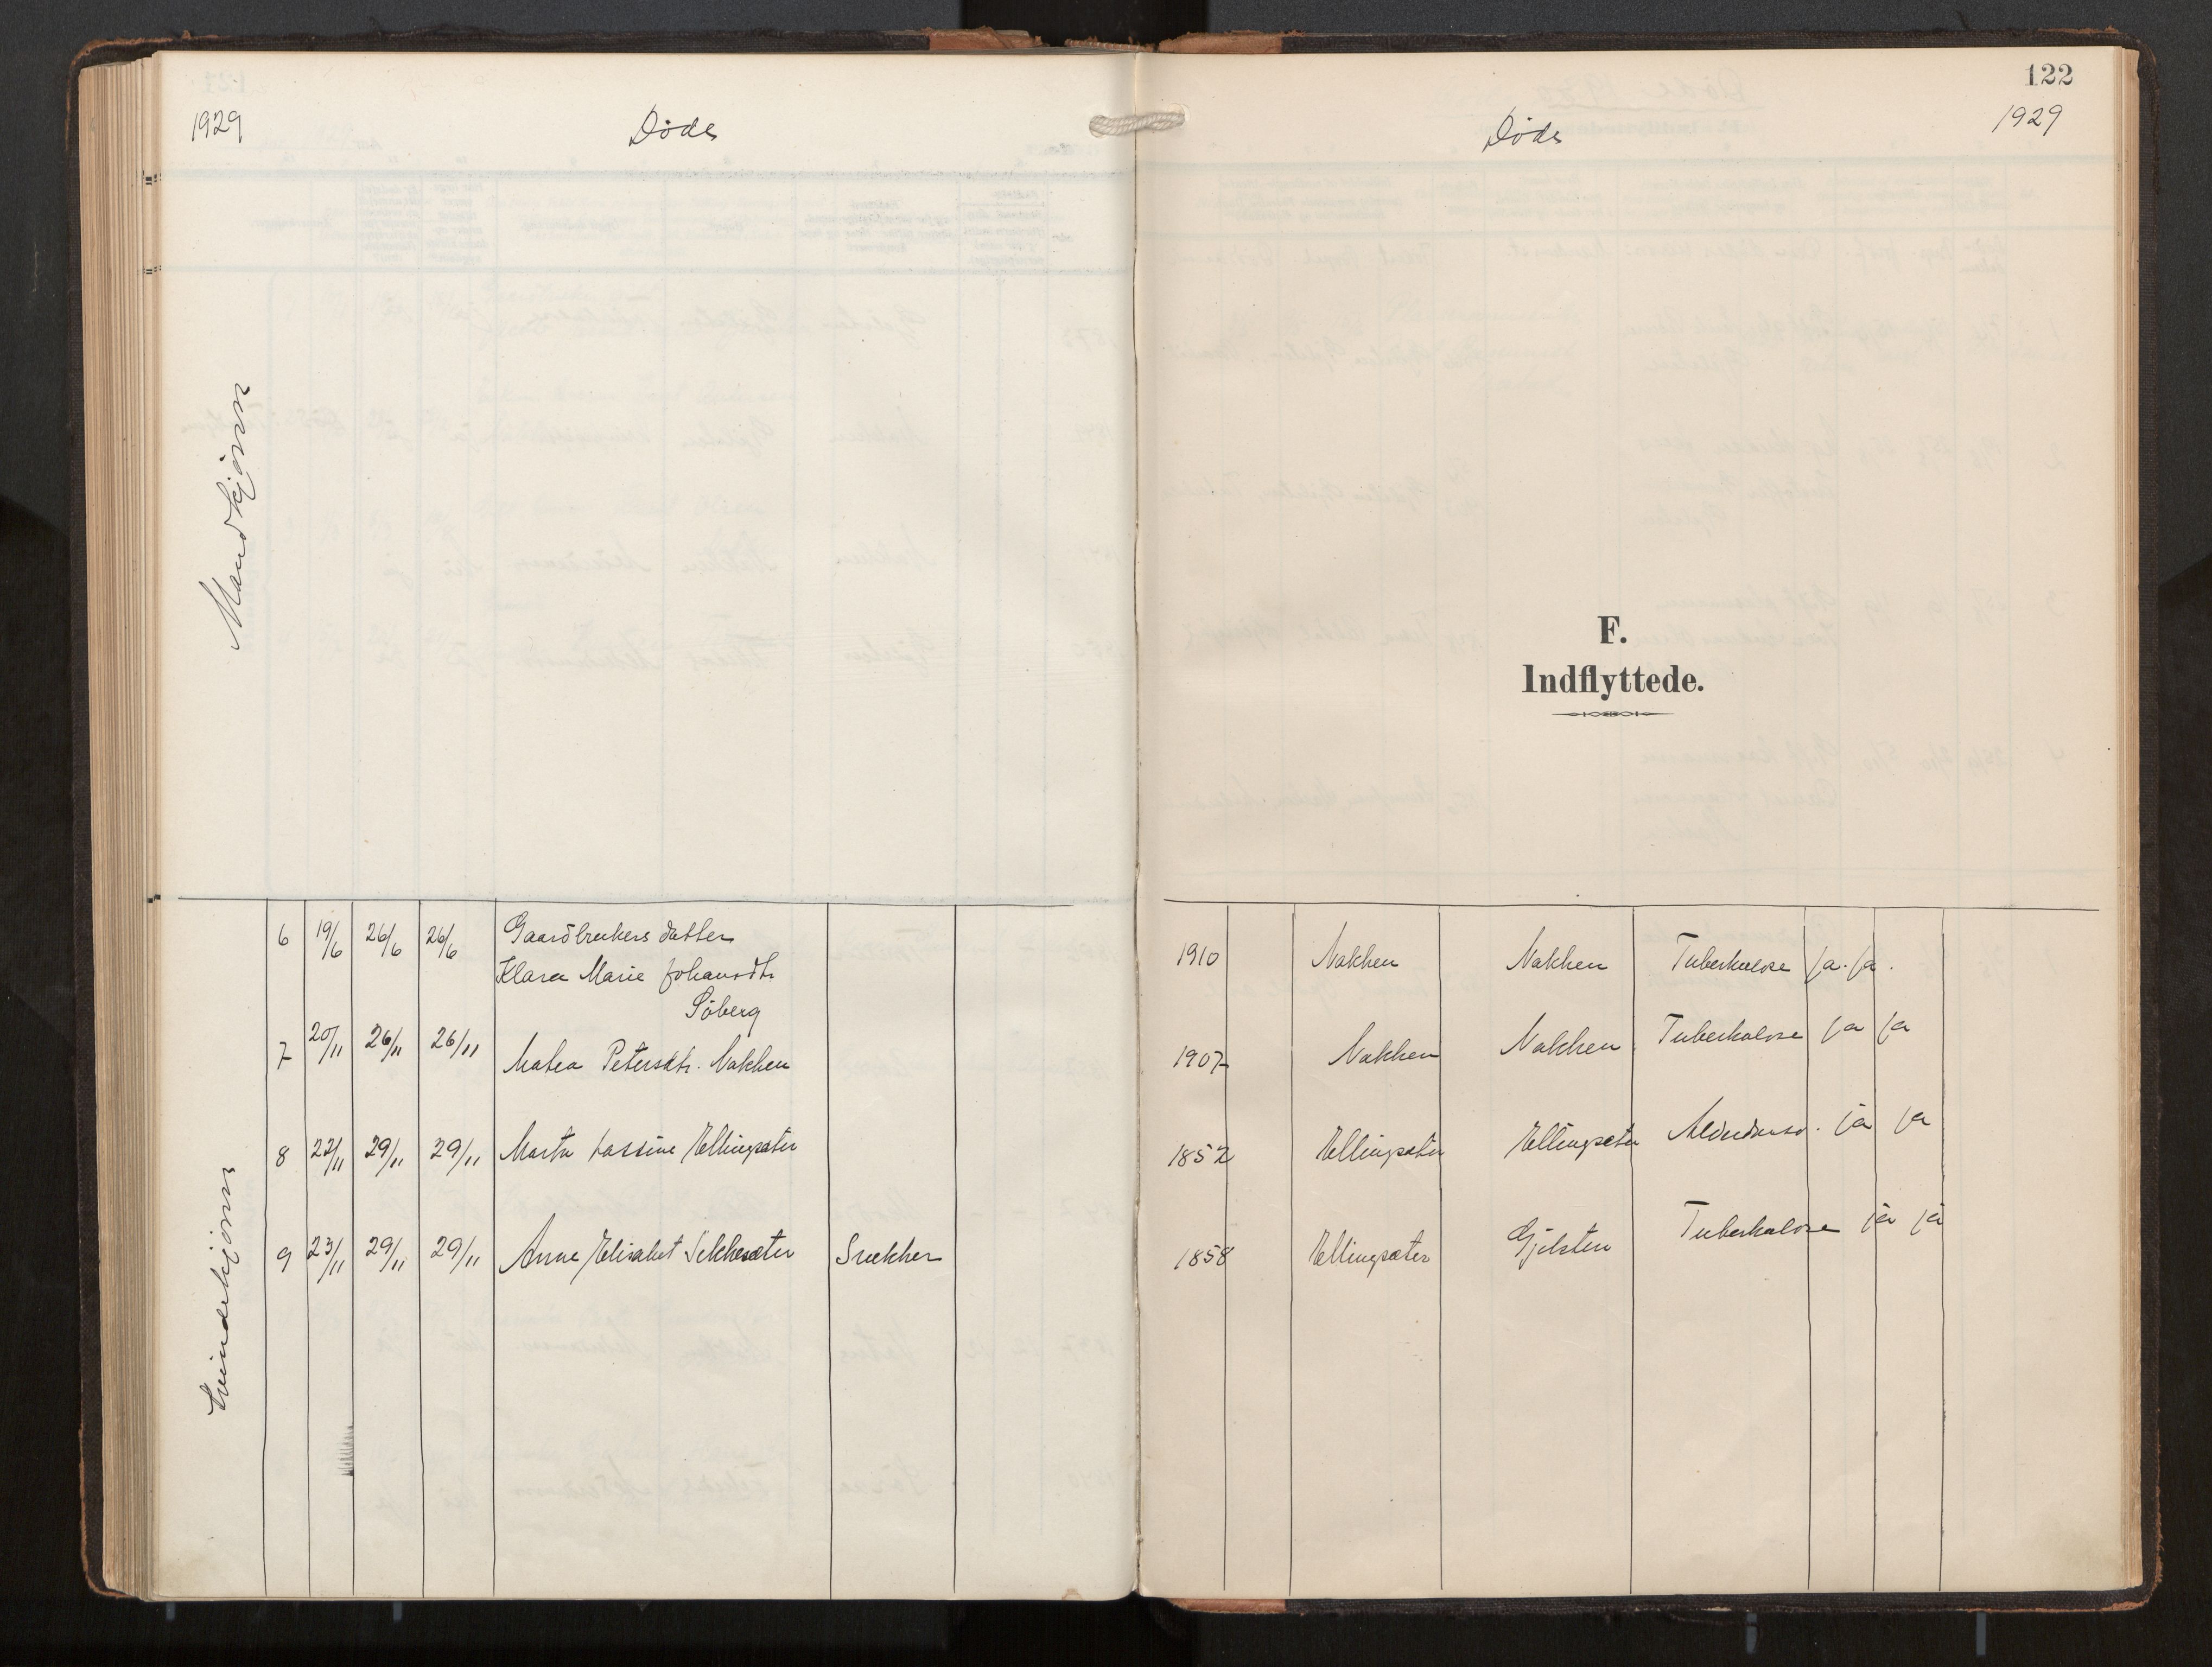 122
1929 Døde
Døde 1929
Mandkjønn
F.
Indflyttede.
Kvindekjønn
6 19/6 26/6 26/6 Gaardbrukers datter
Klara Marie Johansdtr. 1910 Nakken Nakken Tuberkulose ja. ja.
Söberg
7 20/11 26/11 26/11 Matea Petersdtr. Nakken 1907 Nakken Nakken Tuberkulose ja ja
8 22/11 29/11 29/11 Marta Lassine Ellingsæter 1852 Ellingsæter Ellingsæter Alderdomss. ja ja
9 23/11 29/11 29/11 Anne Elisabet Sekkesæter Snekker 1858 Ellingsæter Gjelsten Tuberkulose ja ja